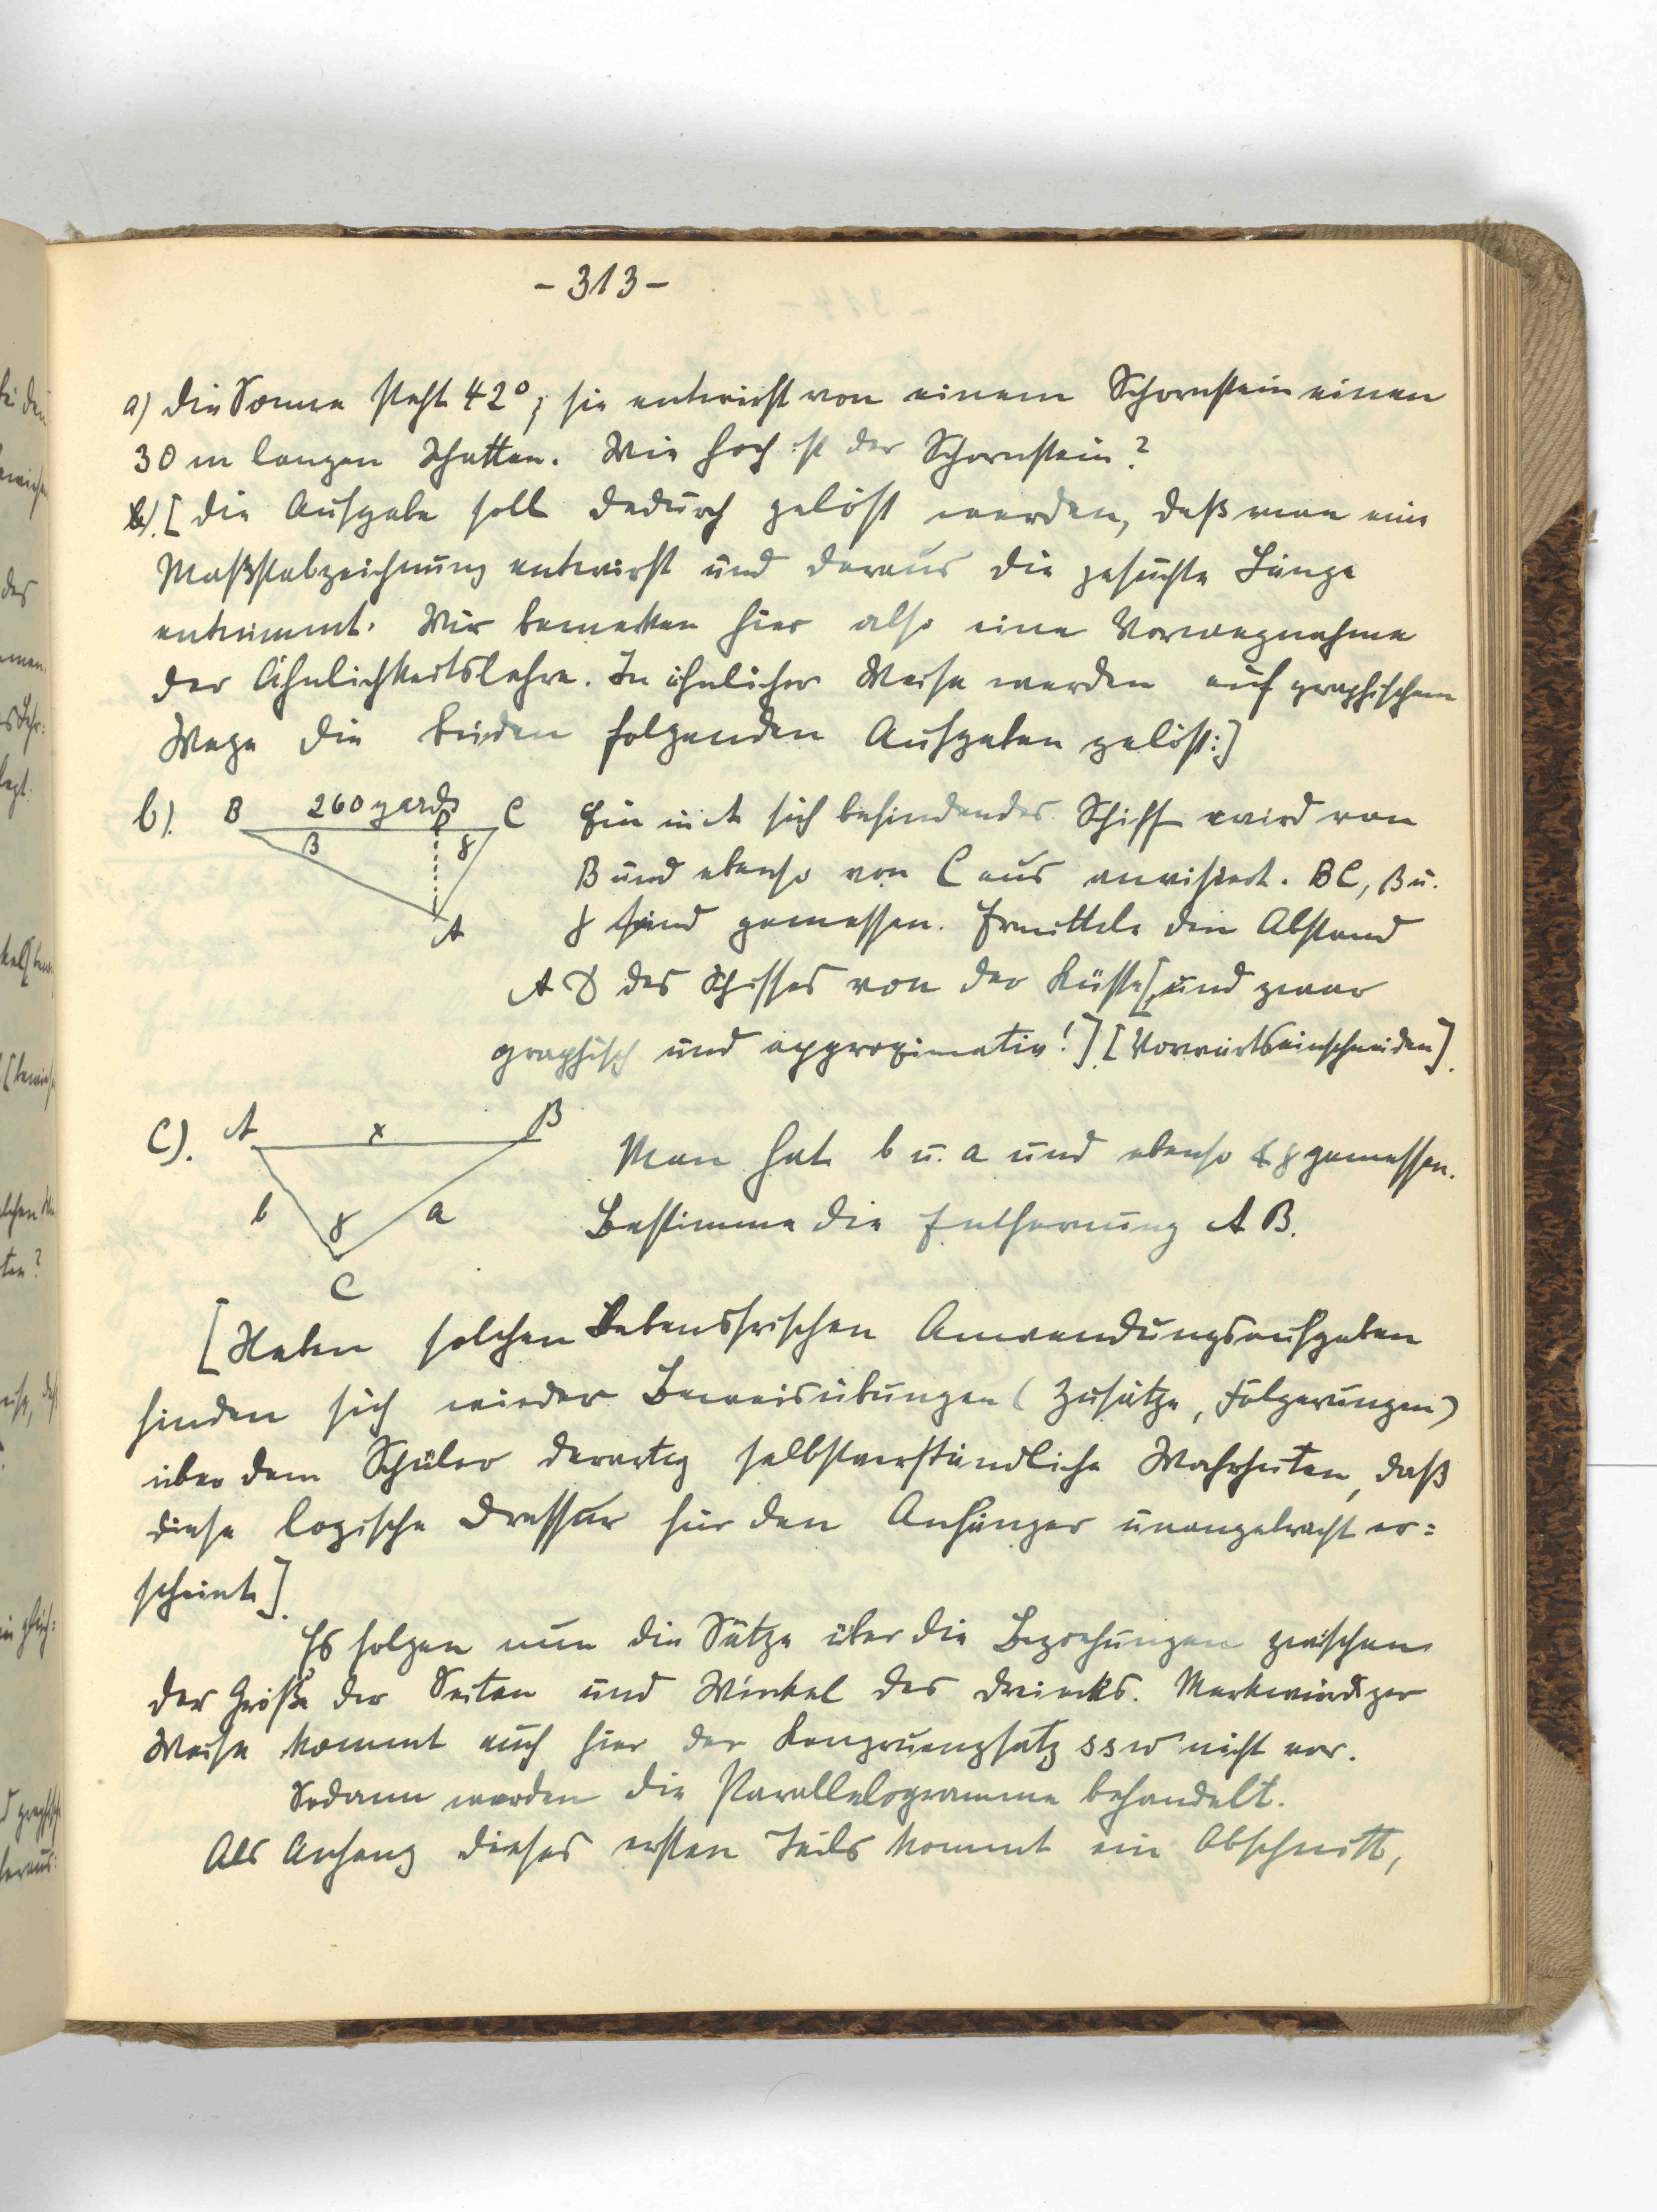 - 313 -
a) Die Sonne steht 42°; sie entwirft von einem Schornstein einen
30 m langen Schatten. Wie hoch ist der Schornstein?
[Die Aufgabe soll dadurch gelöst werden, daß man eine
Maßstabzeichnung entwirft und daraus die gesuchte Länge
entnimmt. Wir bemerken hier also eine Vorwegnahme
der Ähnlichkeitslehre. In ähnlicher Weise werden auf graphischem
Wege die beiden folgenden Aufgaben gelöst:]
b). B 260 yards C Ein in A sich befindendes Schiff wird von
β γ B und ebenso von C aus anvisiert. BC, β u.
A γ sind gemessen. Ermittele den Abstand
A D des Schiffes von der Küste[, und zwar
graphisch und approximativ!] [Vorwärtseinschneiden].
C). A x B
Man hat b u. a und ebenso ∢ γ gemessen.
b γ a Bestimme die Entfernung A B.
C
[Neben solchen lebensfrischen Anwendungsaufgaben
finden sich wieder Beweisübungen (Zusätze, Folgerungen)
über dem Schüler derartig selbstverständliche Wahrheiten, daß
diese logische Dressur für den Anfänger unangebracht er=
scheint].
Es folgen nun die Sätze über die Beziehungen zwischen
der Größe der Seiten und Winkel des Dreiecks. Merkwürdiger
Weise kommt auch hier der Kongruenzsatz ssw nicht vor.
Sodann werden die Parallelogramme behandelt.
Als Anhang dieses ersten Teils kommt ein Abschnitt,